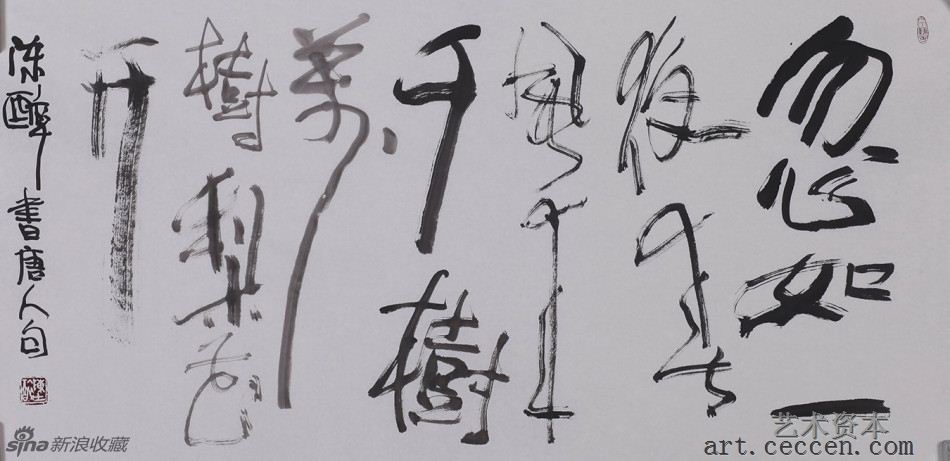 忽如一
夜春
風来
千樹
萬
樹梨花
开
陈醉書唐人句
sina新浪收藏
艺术资本
art.ceccen.com